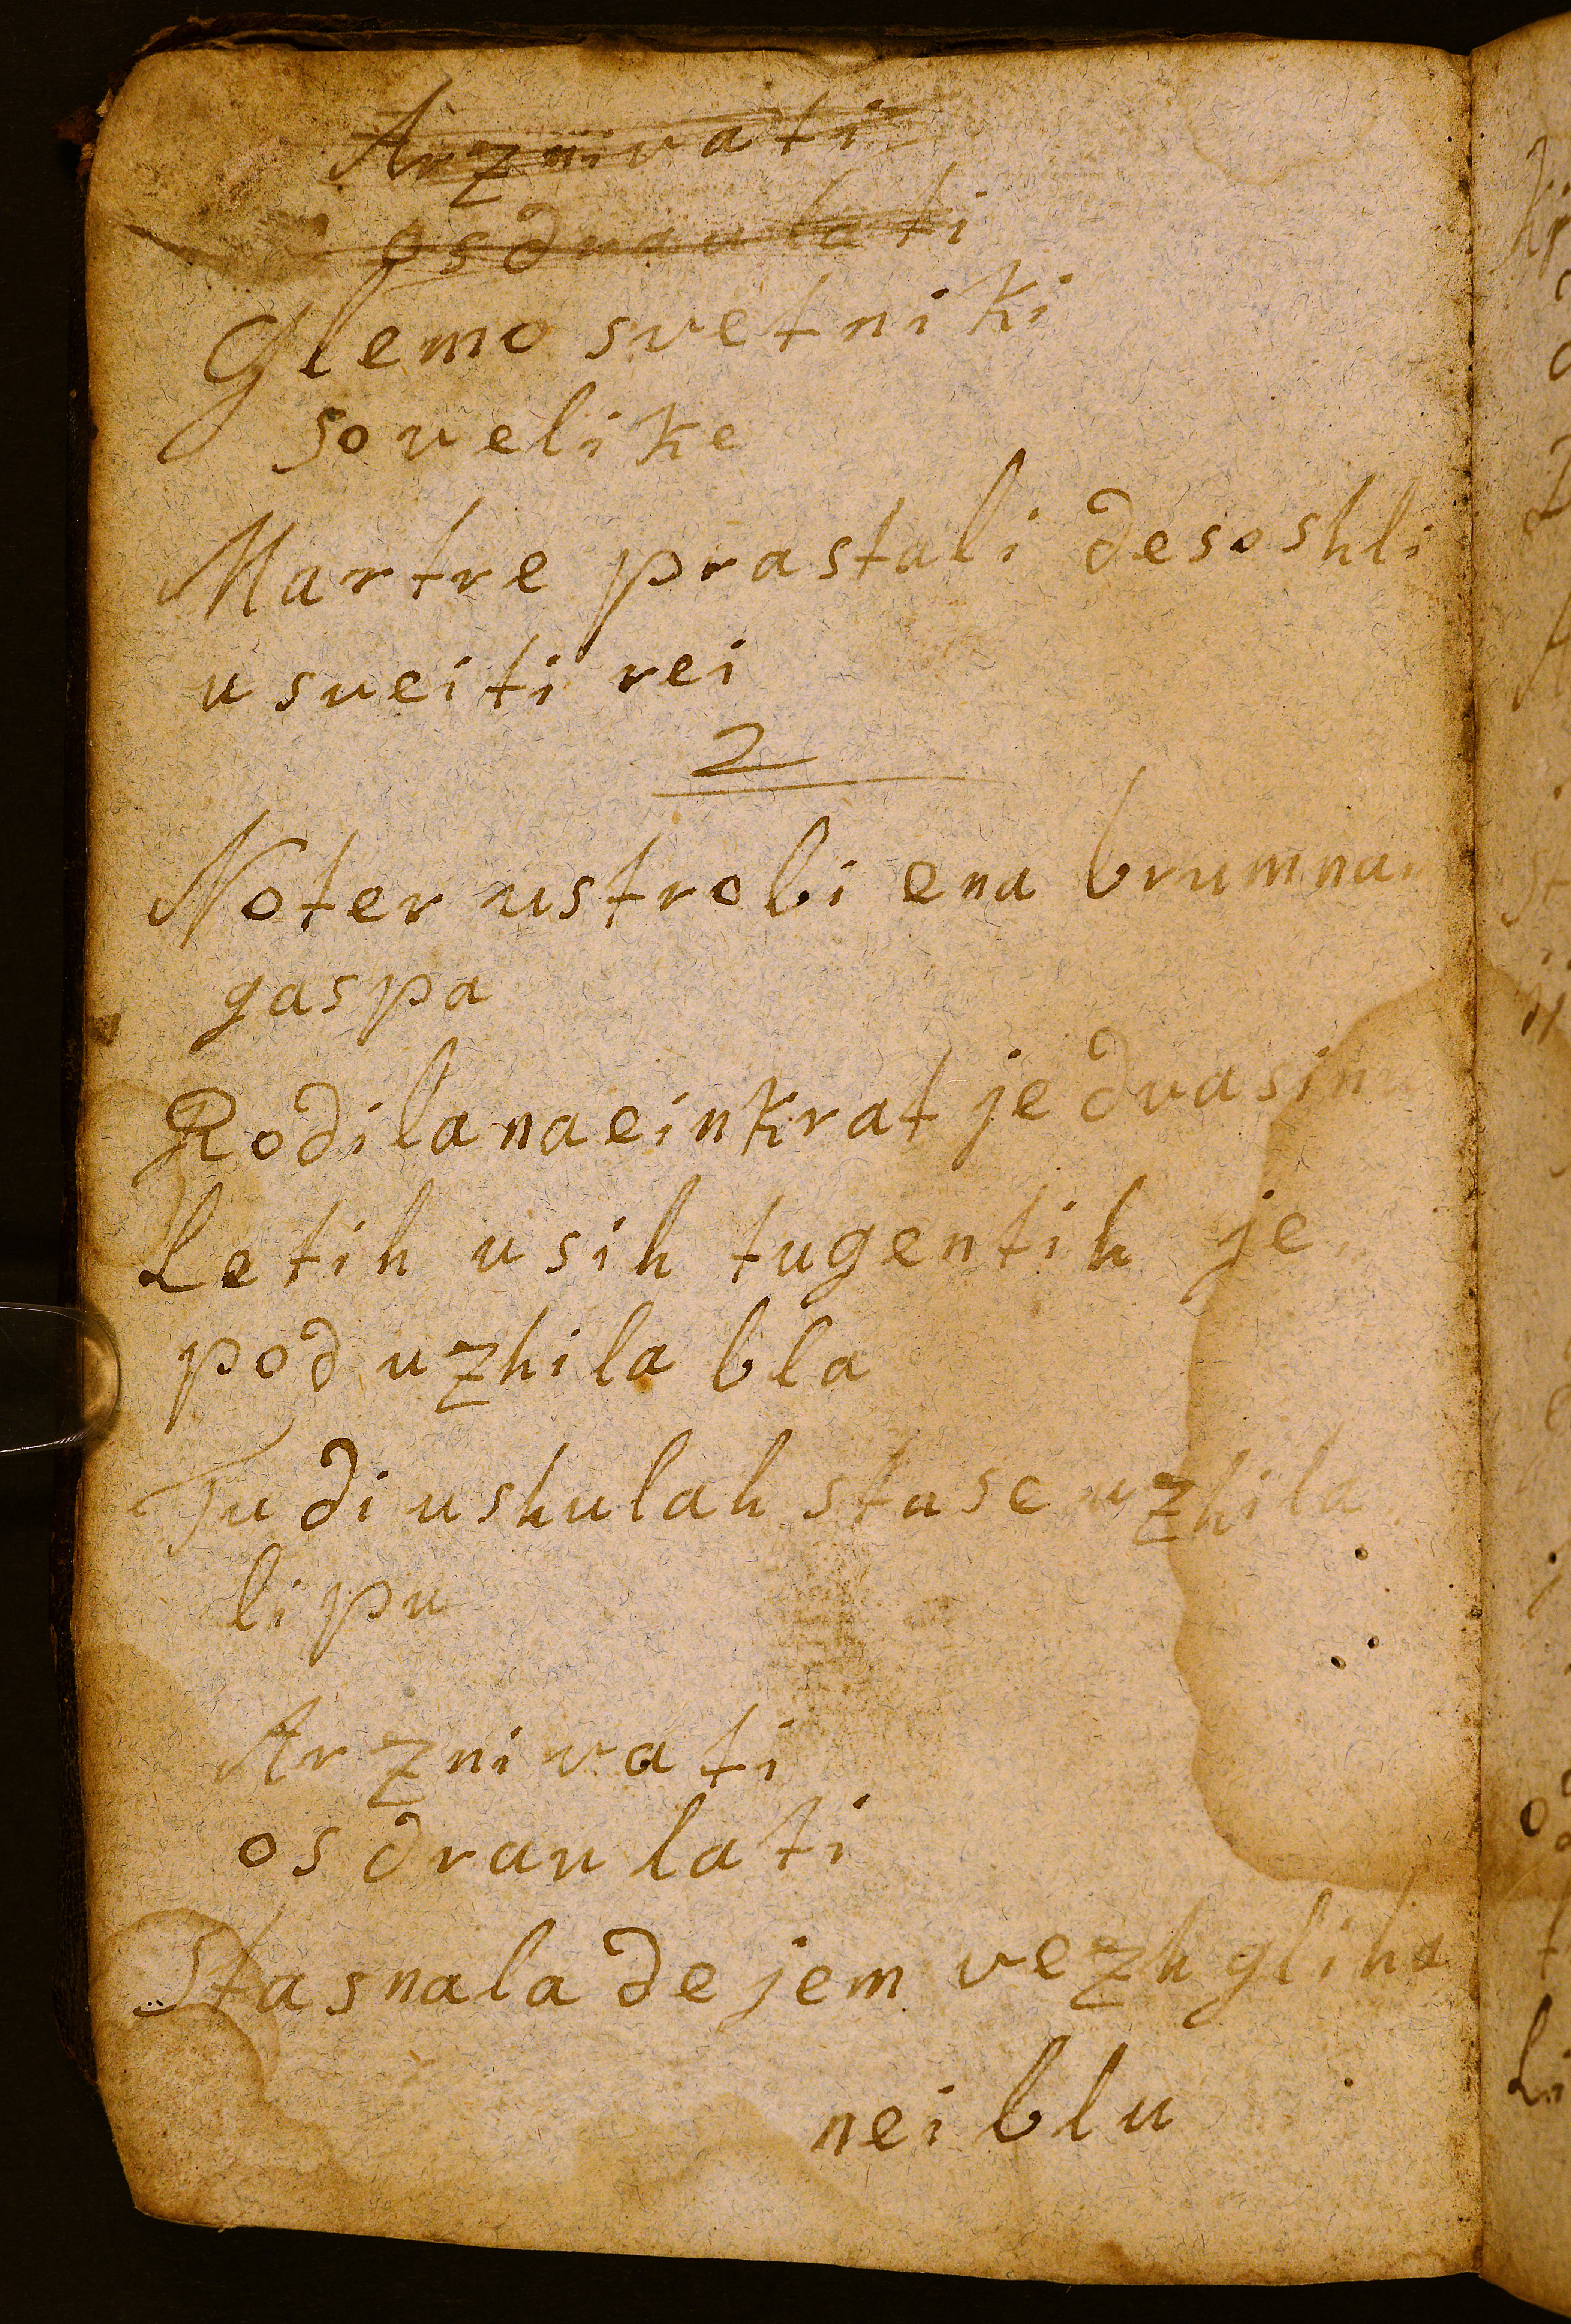 Arznivati
osdraulati
Glemo svetniki
so velike
Martre prastali de so shli
u sueiti rei
2
Noter ustrobi ena brumna
gaspa
Rodila na einkrat je dva sin
Letih usih tugentih je
pod uzhila bla
Tudi ushulah sta se uzhila
lipu
Arznivati
osdraulati
Sta snala de jem vezh gliha
nei blu